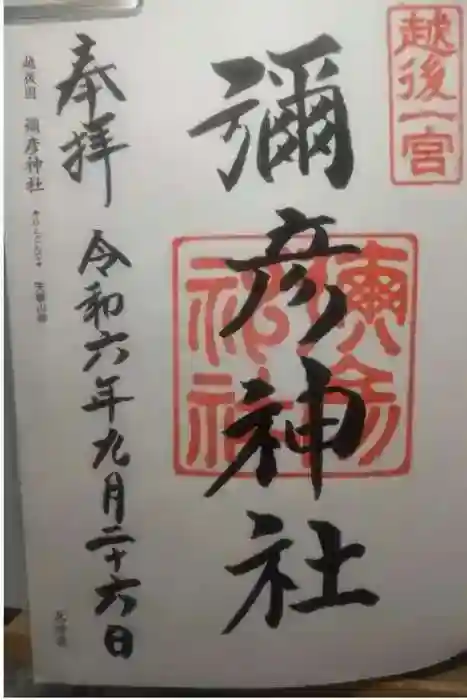 越後一宮
彌彦神社
彌彦神社
奉拝 令和六年九月二十六日
越後国 彌彦神社